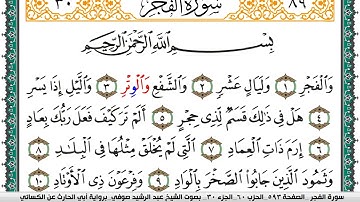 ٣٠ سُورَةُ الفَجْرِ ٨٩
بِسْمِ اللَّهِ الرَّحْمَٰنِ الرَّحِيمِ
وَالْفَجْرِ ١ وَلَيَالٍ عَشْرٍ ٢ وَالشَّفْعِ وَالْوِتْرِ ٣ وَالَّيْلِ إِذَا يَسْرِ
٤ هَلْ فِي ذَٰلِكَ قَسَمٌ لِّذِي حِجْرٍ ٥ أَلَمْ تَرَ كَيْفَ فَعَلَ رَبُّكَ بِعَادٍ
٦ إِرَمَ ذَاتِ الْعِمَادِ ٧ الَّتِي لَمْ يُخْلَقْ مِثْلُهَا فِي الْبِلَٰدِ
٨ وَثَمُودَ الَّذِينَ جَابُوا الصَّخْرَ بِالْوَادِ ٩ وَفِرْعَوْنَ ذِي الْأَوْتَادِ
سورة الفجر . الصفحة ٥٩٣ . الحزب ٦٠ . الجزء ٣٠ . بصوت الشيخ عبد الرشيد صوفي . برواية أبي الحارث عن الكسائي